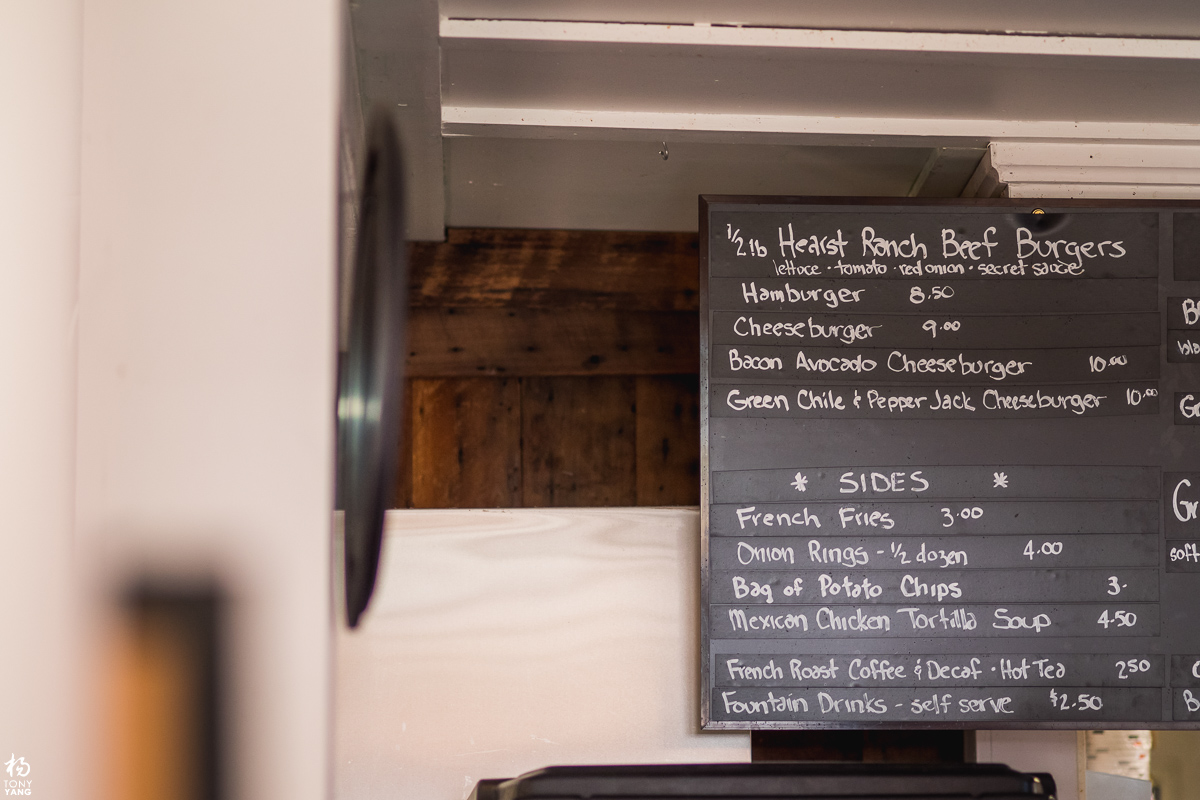 1/2 lb Hearst Ranch Beef Burgers
lettuce · tomato · red onion · secret sauce
Hamburger 8.50
Cheeseburger 9.00
Bacon Avocado Cheeseburger 10.00
Green Chile & Pepper Jack Cheeseburger 10.00
* SIDES *
French Fries 3.00
Onion Rings - 1/2 dozen 4.00
Bag of Potato Chips 3.-
Mexican Chicken Tortilla Soup 4.50
French Roast Coffee & Decaf · Hot Tea 250
Fountain Drinks - self serve $2.50
soft
杨
TONY
YANG